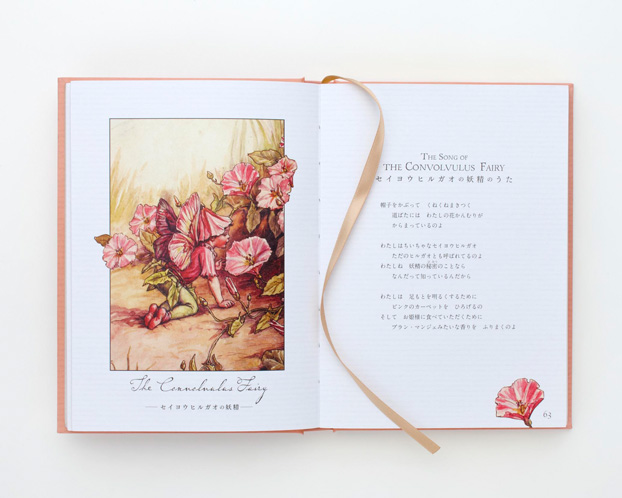 The Convolvulus Fairy
セイヨウヒルガオの妖精
THE SONG OF
THE CONVOLVULUS FAIRY
セイヨウヒルガオの妖精のうた
帽子をかぶって くねくねまきつく
道ばたには わたしの花かんむりが
からまっているのよ
わたしはちいちゃなセイヨウヒルガオ
ただのヒルガオとも呼ばれてるのよ
わたしね 妖精の秘密のことなら
なんだって知っているんだから
わたしは 足もとを明るくするために
ピンクのカーペットを ひろげるの
そして お姫様に食べていただくために
ブラン・マンジェみたいな香りを ふりまくのよ
63